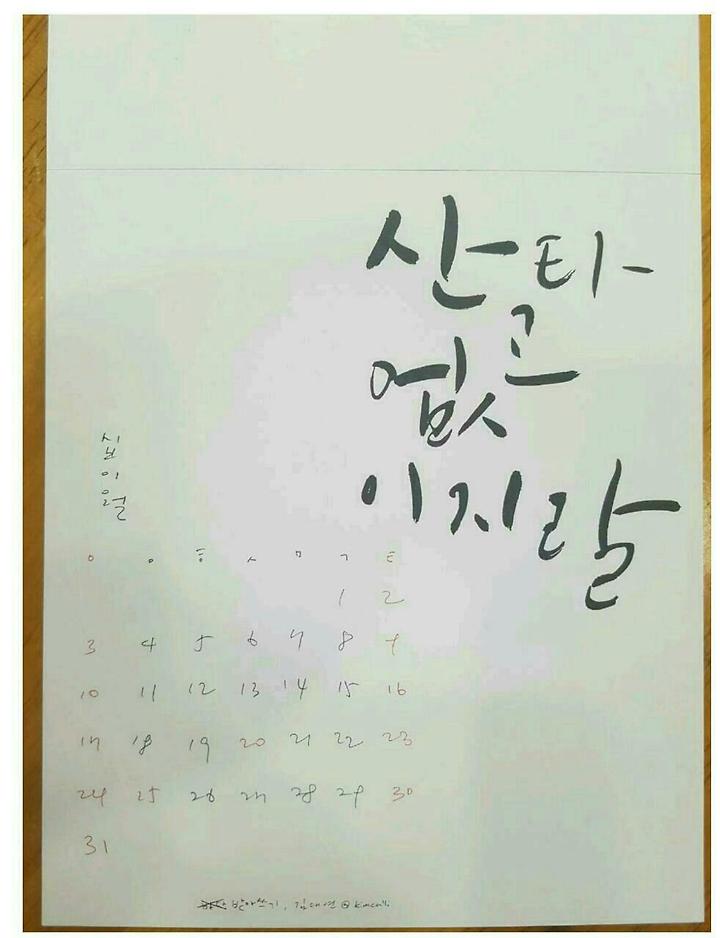 산타
고
없
이지랄
십이월
ㅇ ㅇ ㅎ ㅅ ㅁ ㄱ ㅌ
1 2
3 4 5 6 7 8 9
10 11 12 13 14 15 16
17 18 19 20 21 22 23
24 25 26 27 28 29 30
31
받아쓰기, 김대연 @